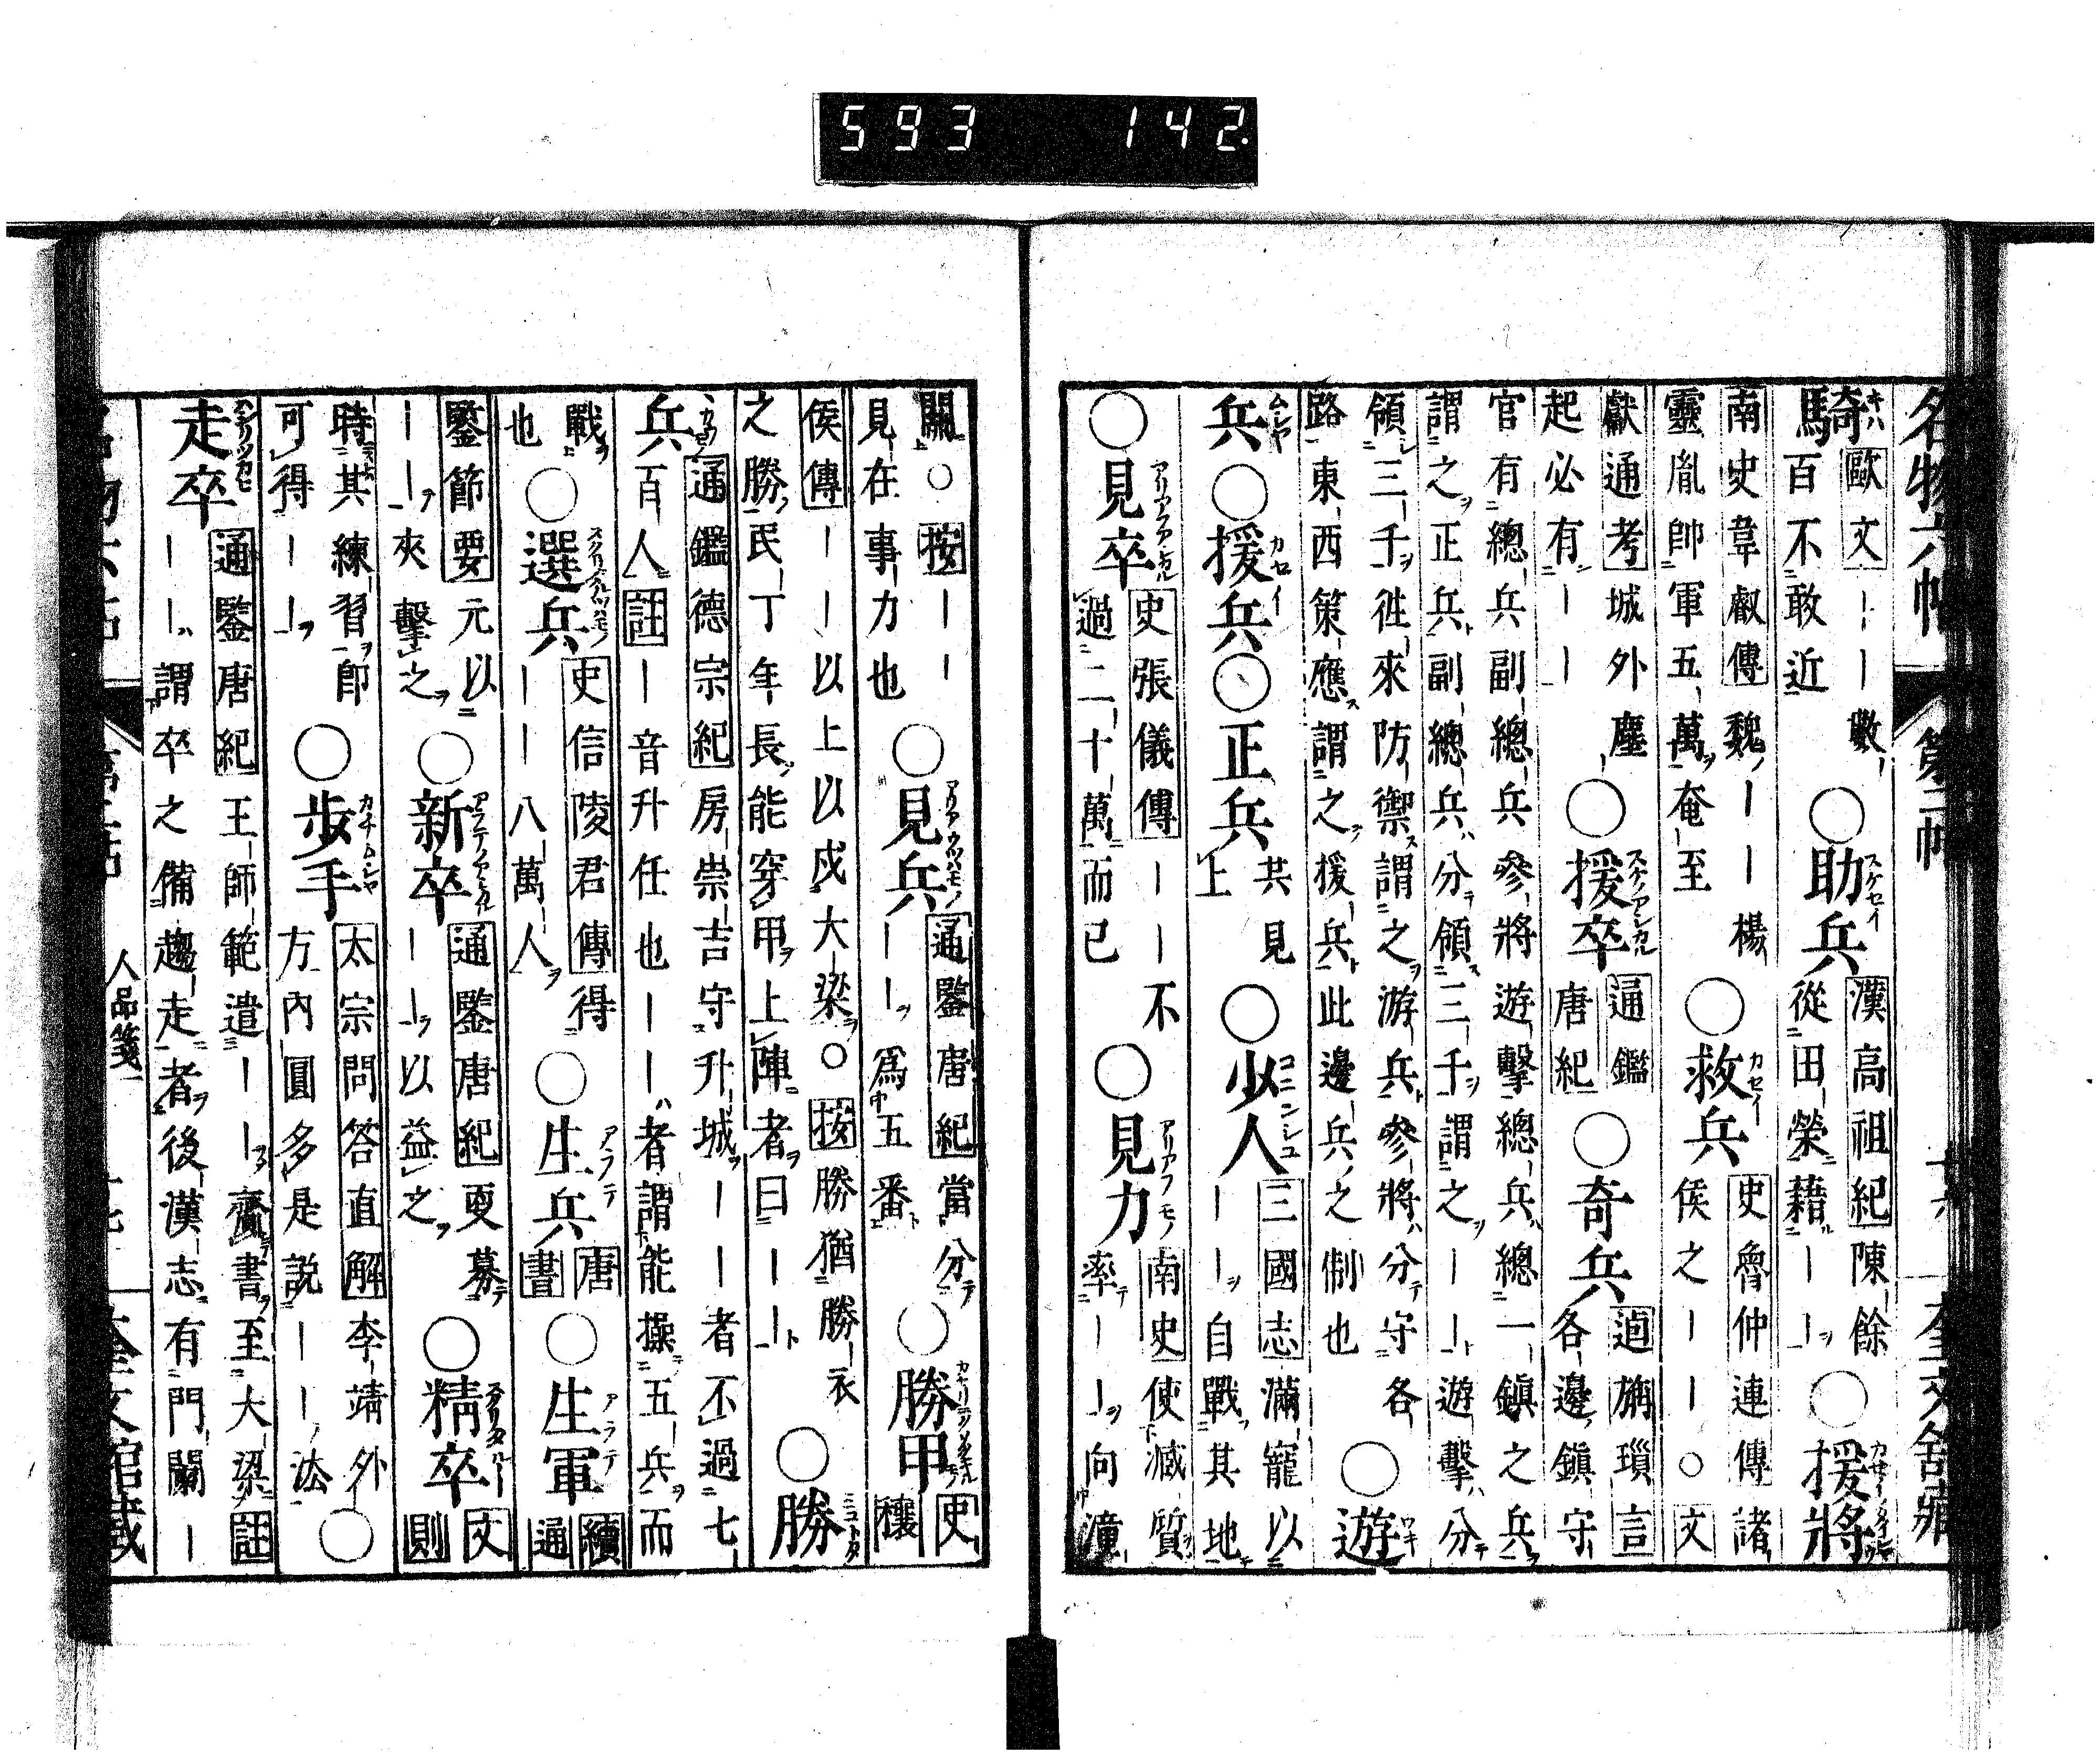 593 142
名物六帖 第二帖 奎文館藏
騎 歐文｜｜數百不敢近 ○助兵 スケセイ 漢高祖紀陳餘從田榮藉｜｜ ○援將
南史韋叡傳魏｜｜楊靈胤帥軍五萬奄至 ○救兵 カセイ 史魯仲連傳諸侯之｜｜○文
獻通考城外塵起必有｜｜ ○援卒 スケノアシカル 通鑑唐紀 ○奇兵 逌旃璅言各邊鎮守
官有總兵副總兵參將遊擊總兵總一鎮之兵
謂之正兵副總兵分領三千謂之｜｜遊擊分
領三千徃來防禦謂之游兵參將分守各
路東西策應謂之援兵此邊兵之制也 ○遊
兵 ムシヤ ○援兵 カセイ ○正兵 共見上 ○少人 コニンシユ 三國志滿寵以｜｜自戰其地
○見卒 史張儀傳｜｜不過二十萬而已 ○見力 アリアフモノ 南史使臧質率｜｜向潼
關○按｜｜見在事力也 ○見兵 通鑒唐紀當分｜｜爲五番 ○勝甲 史穰
侯傳｜｜以上以戍大梁○按勝猶勝衣
之勝民丁年長能穿甲上陣者曰｜｜ ○勝
兵 通鑑德宗紀房崇吉守升城｜｜者不過七
百人註｜音升任也｜｜者謂能操五兵而
戰也 ○選兵 史信陵君傳得｜｜八萬人 ○生兵 アラテ 唐書 ○生軍 アラテ 續通
鑒節要元以｜｜夾擊之 ○新卒 通鑒唐紀更募｜｜以益之 ○精卒 文則
時其練習即可得｜｜ ○步手 カチムシヤ 太宗問答直解李靖外方內圓多是説｜｜法 ○
走卒 ハシリツカヒ 通鑒唐紀王師範遣｜｜齎書至大梁註
｜｜謂卒之備趨走者後漢志有門闌｜
人品箋
奎文館藏